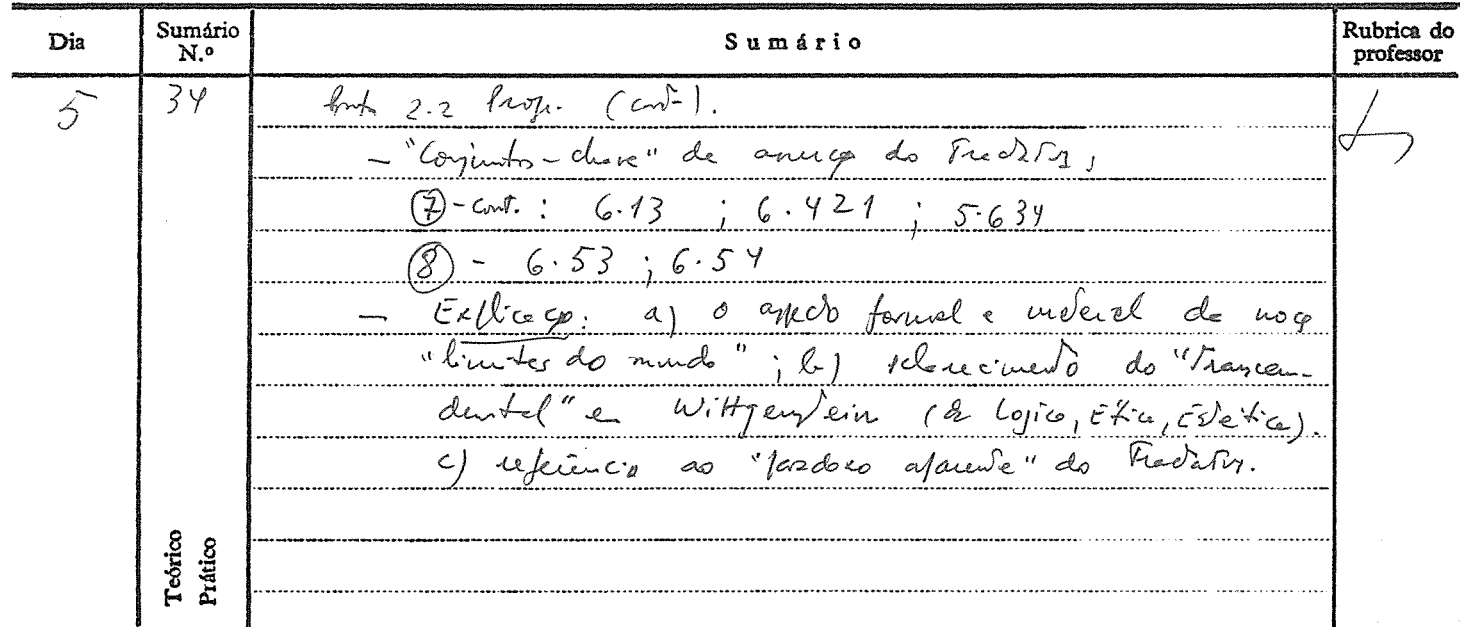 Dia Sumário N.º Sumário Rubrica do professor
5 34 2.2 Prog. (cont.).
- "Conjuntos-chave" de do Tractatus,
⑦-cont. : 6.13 ; 6.421 ; 5.634
⑧ - 6.53 ; 6.54
- Explicação: a) o aspecto formal e material da noção
"limites do mundo" ; b) esclarecimento do "Transcen-
dental" em Wittgenstein (da Lógica, Ética, Estética).
c) referência ao "paradoxo aparente" do Tractatus.
Teórico
Prático